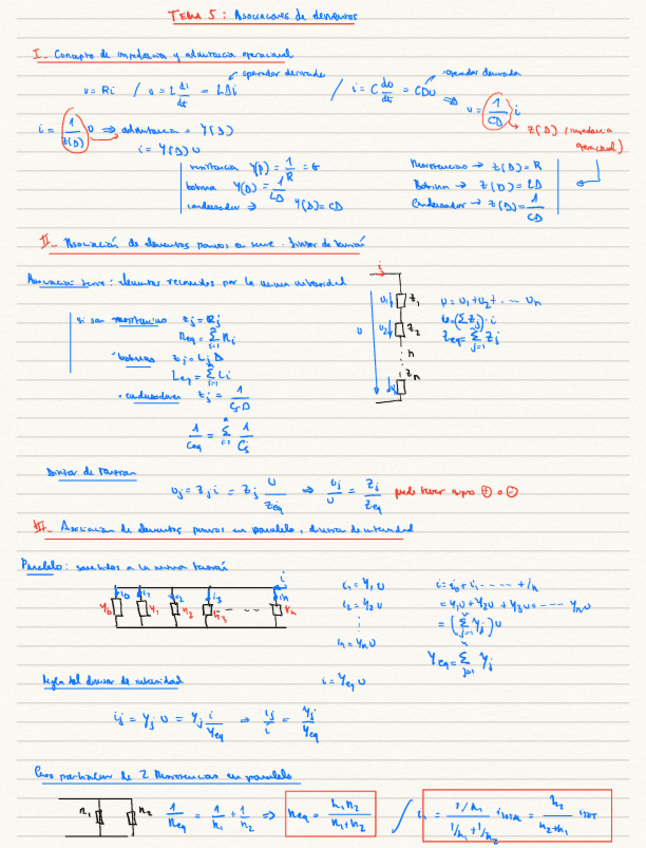 TEMA 5: Asociaciones de elementos
I- Concepto de impedancia y admitancia operacional
u = Ri / u = L di/dt = LDi → operador derivada / i = C du/dt = CDu → operador derivada ⇒ u = (1/CD) i
→ Z(D) (impedancia operacional)
i = (1/Z(D)) u ⇒ admitancia = Y(D)
i = Y(D) u
resistencia Y(D) = 1/R = G
bobina Y(D) = 1/LD
condensador → Y(D) = CD
Resistencias → Z(D) = R
Bobina → Z(D) = LD
Condensador → Z(D) = 1/CD
II- Asociación de elementos pasivos en serie. Divisor de tensión
Asociación serie: elementos recorridos por la misma intensidad
si son resistencias Zj = Rj
Req = Σ Rj
bobinas Zj = Lj D
Leq = Σ Lj
condensadores Zj = 1/CjD
1/Ceq = Σ 1/Cj
i
u
u1 Z1
u2 Z2
Zn
u = u1 + u2 + ... un
u = (Σ Zj) · i
Zeq = Σ Zj
Divisor de tensión
uj = Zj i = Zj u/Zeq ⇒ uj/u = Zj/Zeq puede tener signo + o -
III- Asociacion de elementos pasivos en paralelo, divisor de intensidad
Paralelo: sometidos a la misma tensión
i
i0 i1 i2 i3 in
Y0 Y1 Y2 Y3 Yn
i1 = Y1 u
i2 = Y2 u
in = Yn u
i = Yeq u
i = i0 + i1 ..... + in
= Y1u + Y2u + Y3u + .... Yn u
= (Σ Yj) u
Yeq = Σ Yj
Regla del divisor de intensidad
ij = Yj u = Yj i/Yeq → ij/i = Yj/Yeq
Caso particular de 2 Resistencias en paralelo
R1 R2 1/Req = 1/R1 + 1/R2 ⇒ Req = R1R2/(R1+R2) / i1 = (1/R1)/(1/R1 + 1/R2) itotal = R2/(R2+R1) itot